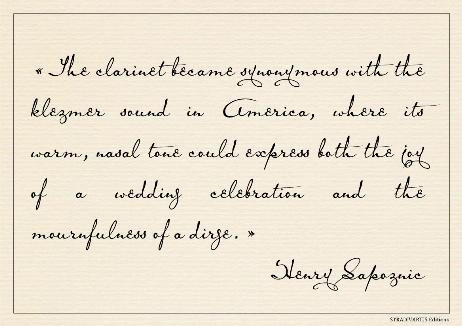 « The clarinet became synonymous with the
klezmer sound in America, where its
warm, nasal tone could express both the joy
of a wedding celebration and the
mournfulness of a dirge. »
Henry Sapoznic
STRADIVARIUS Editions